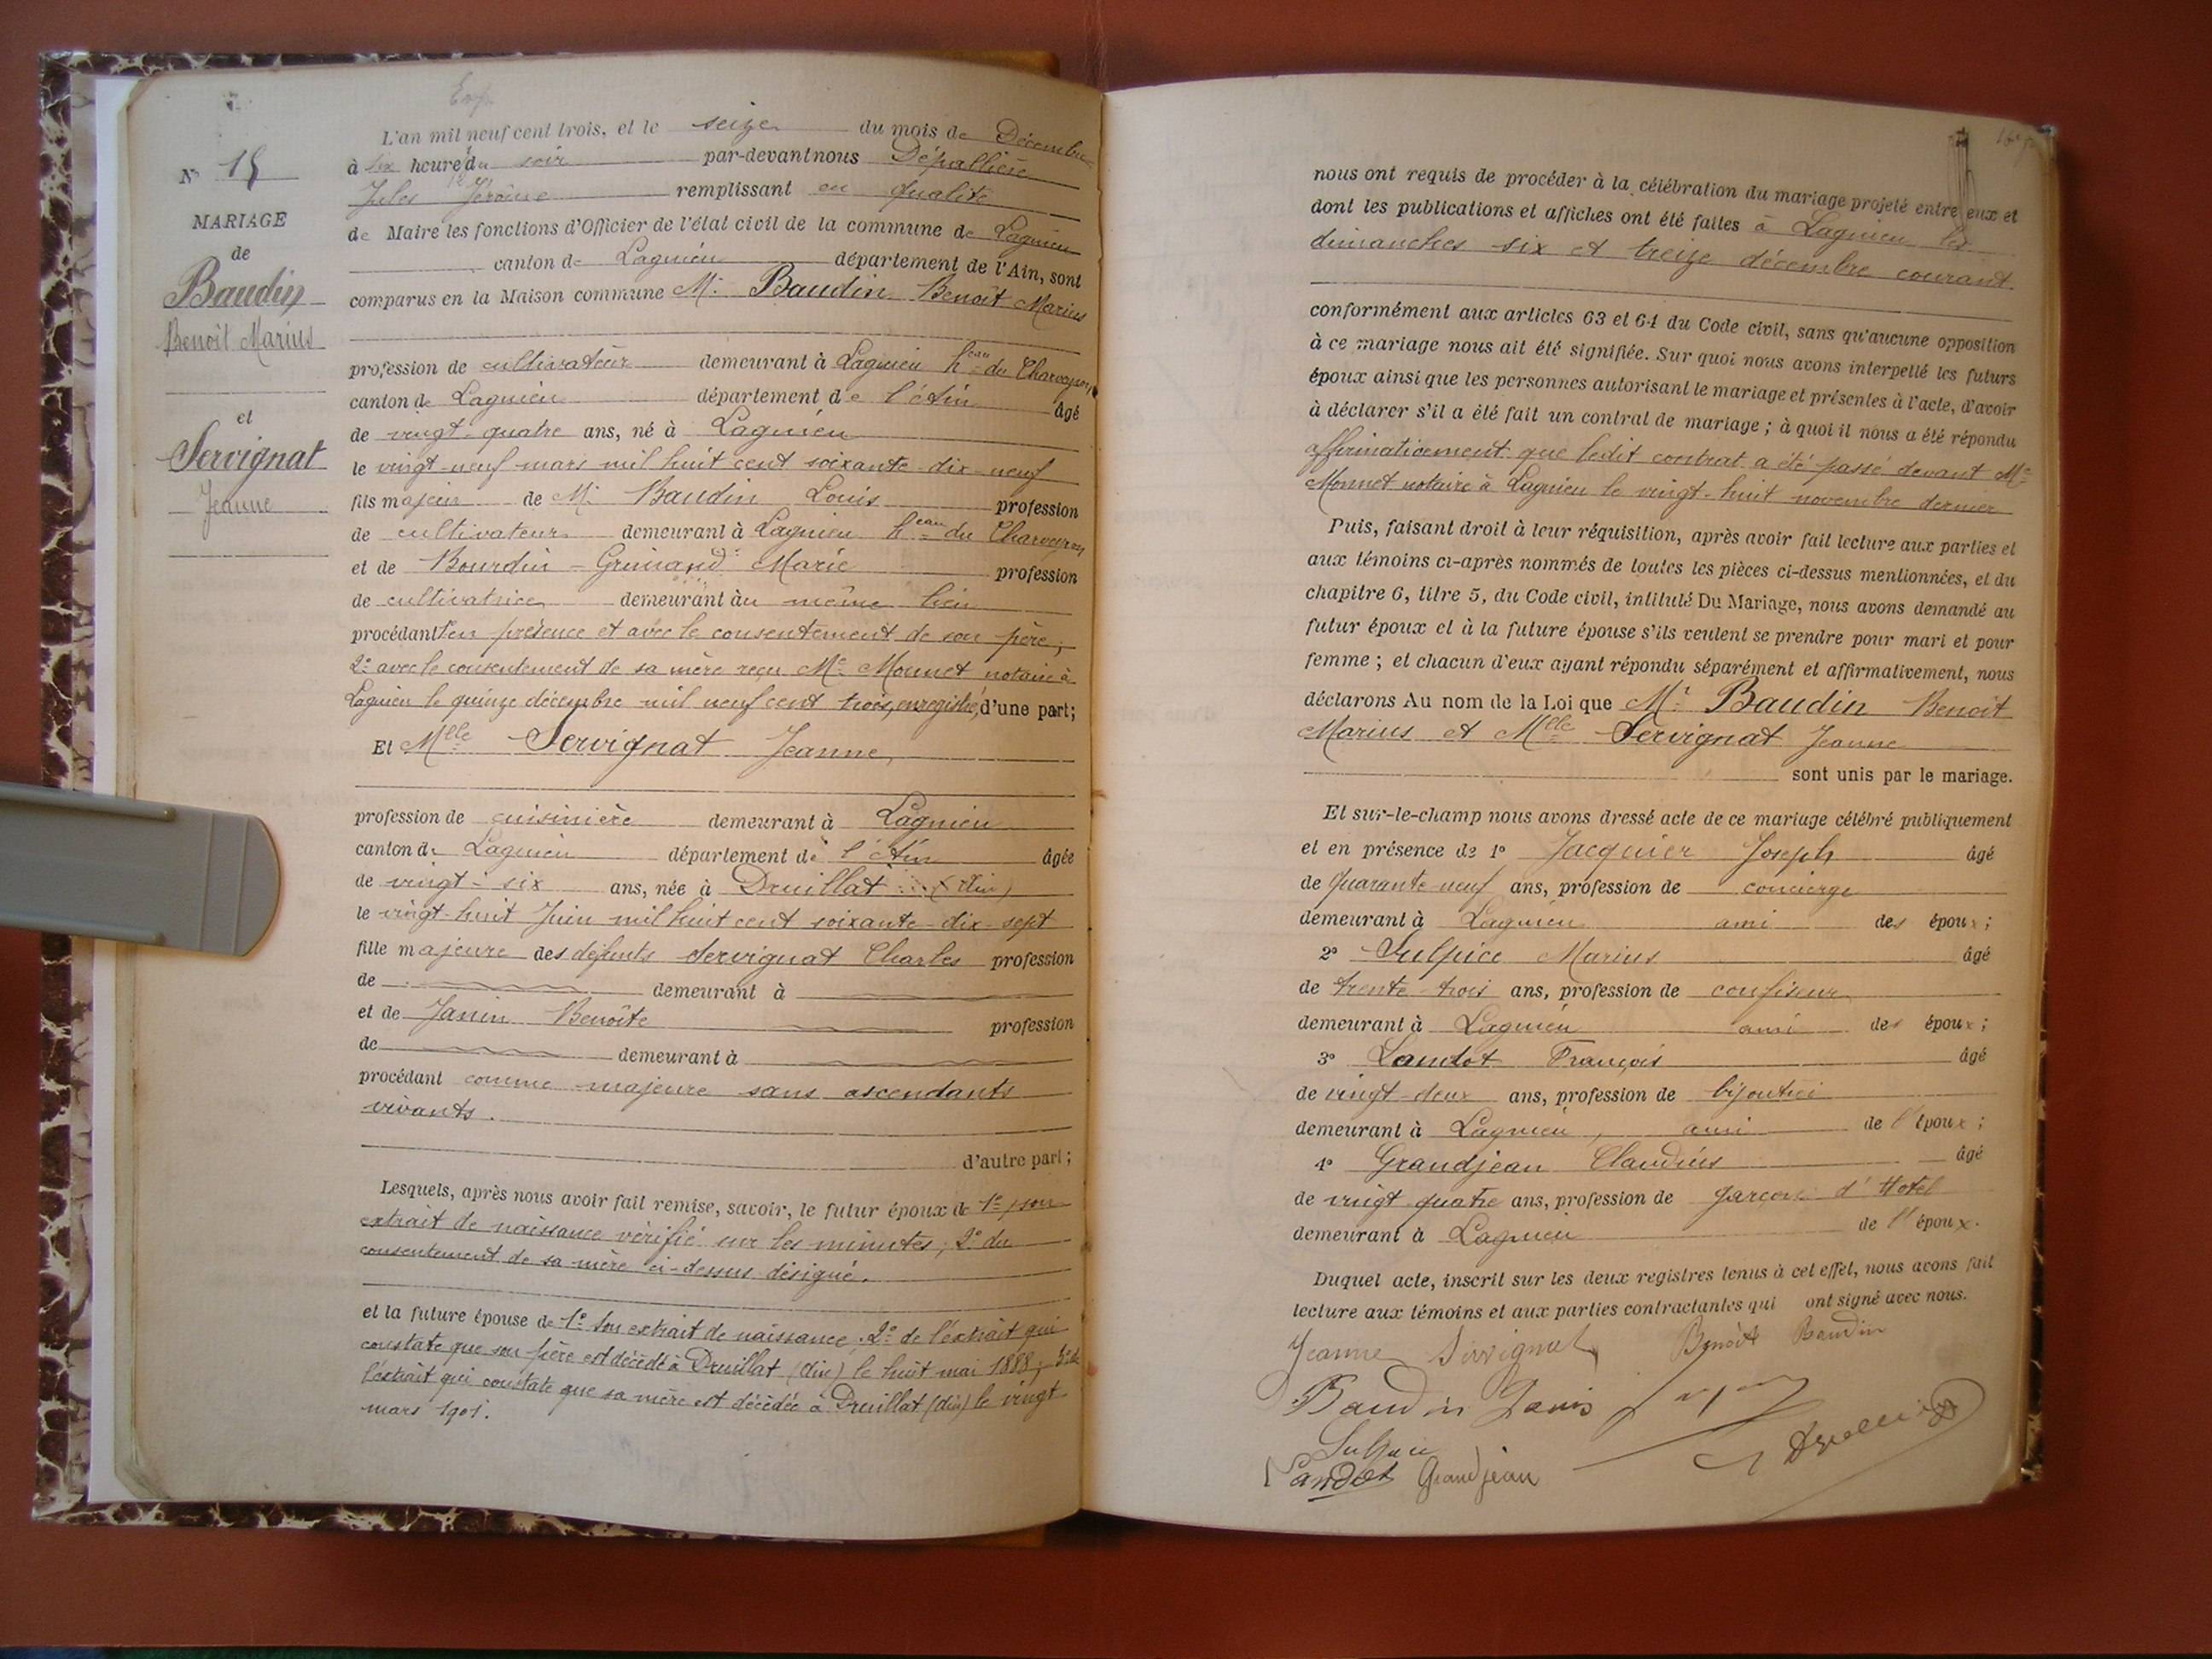 L'an mil neuf cent trois, et le seize du mois de Décembre
à six heures du soir par-devant nous Dépallière
Jules Jérôme remplissant en qualité
de Maire les fonctions d'Officier de l'état civil de la commune de Lagnieu
canton de Lagnieu département de l'Ain, sont
comparus en la Maison commune Mr Baudin Benoît Marius
profession de cultivateur demeurant à Lagnieu heau du Charveyron
canton de Lagnieu département de l'Ain âgé
de vingt-quatre ans, né à Lagnieu
le vingt-neuf mars mil huit cent soixante-dix-neuf
fils majeur de Mr Baudin Louis profession
de cultivateur demeurant à Lagnieu heau du Charveyron
et de Bourdin-Grimand Marie profession
de cultivatrice demeurant au même lieu
procédant 1° en présence et avec le consentement de son père;
2° avec le consentement de sa mère reçu Me Monnet notaire à
Lagnieu le quinze décembre mil neuf cent trois, enregistré, d'une part;
Et Mlle Servignat Jeanne
profession de cuisinière demeurant à Lagnieu
canton de Lagnieu département de l'Ain âgée
de vingt-six ans, née à Druillat (Ain)
le vingt-huit Juin mil huit cent soixante-dix-sept
fille majeure des défunts Servignat Charles profession
de demeurant à
et de Janin Benoîte profession
de demeurant à
procédant comme majeure sans ascendants
vivants.
d'autre part;
Lesquels, après nous avoir fait remise, savoir, le futur époux de 1° son
extrait de naissance vérifié sur les minutes; 2° du
consentement de sa mère ci-dessus désigné.
et la future épouse de 1° son extrait de naissance; 2° de l'extrait qui
constate que son père est décédé à Druillat (Ain) le huit mai 1888; 3° de
l'extrait qui constate que sa mère est décédée à Druillat (Ain) le vingt
mars 1901.
N°
MARIAGE
de
Baudin
Benoît Marius
et
Servignat
Jeanne
nous ont requis de procéder à la célébration du mariage projeté entre eux et
dont les publications et affiches ont été faites à Lagnieu les
dimanches six et treize décembre courant
conformément aux articles 63 et 64 du Code civil, sans qu'aucune opposition
à ce mariage nous ait été signifiée. Sur quoi nous avons interpellé les futurs
époux ainsi que les personnes autorisant le mariage et présentes à l'acte, d'avoir
à déclarer s'il a été fait un contrat de mariage; à quoi il nous a été répondu
affirmativement que ledit contrat a été passé devant Me
Monnet notaire à Lagnieu le vingt-huit novembre dernier
Puis, faisant droit à leur réquisition, après avoir fait lecture aux parties et
aux témoins ci-après nommés de toutes les pièces ci-dessus mentionnées, et du
chapitre 6, titre 5, du Code civil, intitulé Du Mariage, nous avons demandé au
futur époux et à la future épouse s'ils veulent se prendre pour mari et pour
femme; et chacun d'eux ayant répondu séparément et affirmativement, nous
déclarons Au nom de la Loi que Mr Baudin Benoît
Marius et Mlle Servignat Jeanne
sont unis par le mariage.
Et sur-le-champ nous avons dressé acte de ce mariage célébré publiquement
et en présence de 1° Jacquier Joseph âgé
de quarante-neuf ans, profession de concierge
demeurant à Lagnieu ami des époux;
2° Sulpice Marius âgé
de trente-trois ans, profession de confiseur
demeurant à Lagnieu ami des époux;
3° Landot François âgé
de vingt-deux ans, profession de bijoutier
demeurant à Lagnieu, ami de l'époux;
4° Grandjean Claudius âgé
de vingt-quatre ans, profession de garçon d'Hotel
demeurant à Lagnieu de l'époux.
Duquel acte, inscrit sur les deux registres tenus à cet effet, nous avons fait
lecture aux témoins et aux parties contractantes qui ont signé avec nous.
Jeanne Servignat Benoît Baudin
Baudin Louis
Sulpice
Landot Grandjean